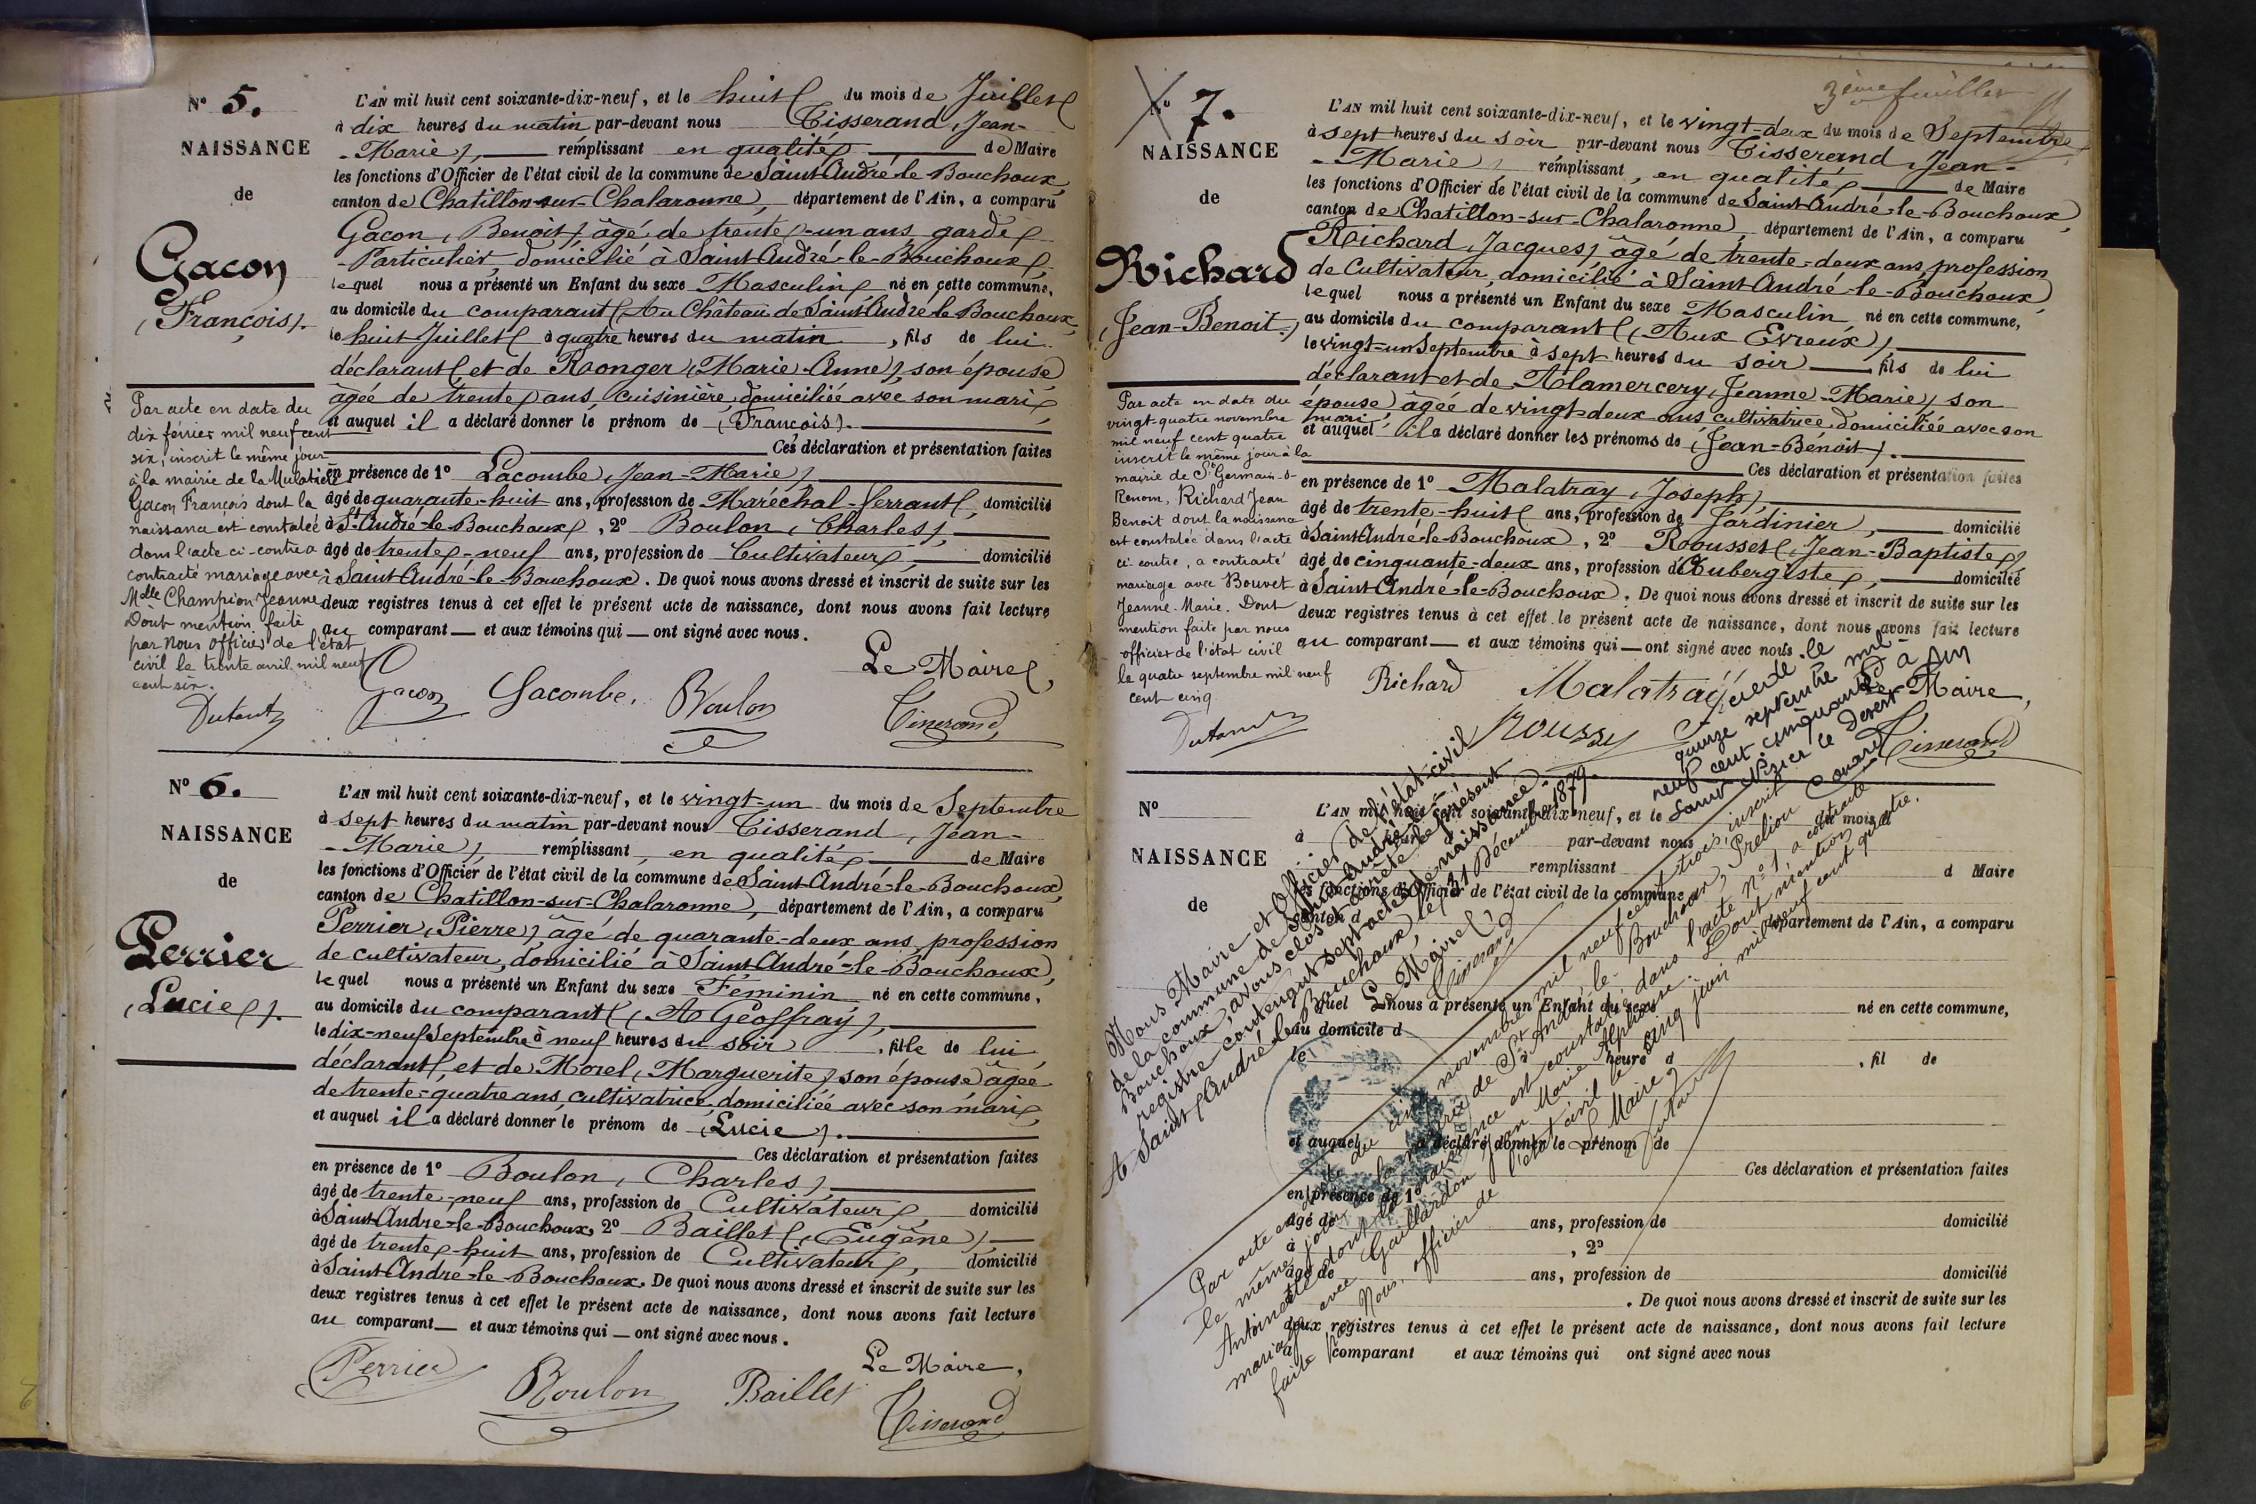 Nº 5.
NAISSANCE
de
Gacon
(François).
Par acte en date du
dix février mil neuf cent
six, inscrit le même jour
à la mairie de la Mulatière
Gacon François dont la
naissance est constatée
dans l'acte ci-contre a
contracté mariage avec
Mlle Champion Jeanne
Dont mention faite
par Nous officier de l'état
civil le trente avril mil neuf
cent six.
Dutant
L'AN mil huit cent soixante-dix-neuf, et le huit du mois de Juillet
à dix heures du matin par-devant nous Tisserand, Jean-
-Marie), remplissant en qualité de Maire
les fonctions d'Officier de l'état civil de la commune de Saint-André-le-Bouchoux,
canton de Chatillon-sur-Chalaronne), département de l'Ain, a comparu
Gacon, (Benoit), âgé de trente-un ans, garde
-Particulier, domicilié à Saint-André-le-Bouchoux,
lequel nous a présenté un Enfant du sexe Masculin né en cette commune,
au domicile du comparant (Au Château de Saint-André-le-Bouchoux,
le huit Juillet à quatre heures du matin, fils de lui
déclarant et de Ronger (Marie-Anne), son épouse
âgée de trente ans, cuisinière, domiciliée avec son mari
et auquel il a déclaré donner le prénom de (François).
Ces déclaration et présentation faites
en présence de 1º Lacombe, Jean-Marie),
âgé de quarante-huit ans, profession de Maréchal-ferrant, domicilié
à St André-le-Bouchoux, 2º Boulon, Charles),
âgé de trente-neuf ans, profession de Cultivateur, domicilié
à Saint-André-le-Bouchoux. De quoi nous avons dressé et inscrit de suite sur les
deux registres tenus à cet effet le présent acte de naissance, dont nous avons fait lecture
au comparant — et aux témoins qui — ont signé avec nous.
Le Maire,
Gacon Lacombe. Boulon Tisserand
Nº 6.
NAISSANCE
de
Perrier
(Lucie).
L'AN mil huit cent soixante-dix-neuf, et le vingt-un du mois de Septembre
à sept heures du matin par-devant nous Tisserand, Jean-
-Marie), remplissant, en qualité de Maire
les fonctions d'Officier de l'état civil de la commune de Saint-André-le-Bouchoux,
canton de Chatillon-sur-Chalaronne), département de l'Ain, a comparu
Perrier, (Pierre), âgé de quarante-deux ans, profession
de cultivateur, domicilié à Saint-André-le-Bouchoux),
lequel nous a présenté un Enfant du sexe Féminin né en cette commune,
au domicile du comparant (A Géoffray),
le dix-neuf Septembre à neuf heures du soir, fille de lui
déclarant et de Morel, (Marguerite) son épouse âgée
de trente-quatre ans, cultivatrice, domiciliée avec son mari
et auquel il a déclaré donner le prénom de (Lucie).
Ces déclaration et présentation faites
en présence de 1º Boulon, Charles),
âgé de trente-neuf ans, profession de Cultivateur, domicilié
à Saint-André-le-Bouchoux, 2º Baillet, (Eugène),
âgé de trente-huit ans, profession de Cultivateur, domicilié
à Saint-André-le-Bouchoux. De quoi nous avons dressé et inscrit de suite sur les
deux registres tenus à cet effet le présent acte de naissance, dont nous avons fait lecture
au comparant — et aux témoins qui — ont signé avec nous.
Le Maire,
Perrier Boulon Baillet Tisserand
3ème feuillet
Nº 7.
NAISSANCE
de
Richard
(Jean-Benoit)
Par acte en date du
vingt-quatre novembre
mil neuf cent quatre
inscrit le même jour à la
mairie de St Germain-s-
Renom, Richard Jean
Benoit dont la naissance
est constatée dans l'acte
ci-contre, a contracté
mariage avec Bouvet
Jeanne-Marie. Dont
mention faite par nous
officier de l'état civil
le quatre septembre mil neuf
cent cinq
Dutant
L'AN mil huit cent soixante-dix-neuf, et le vingt-deux du mois de Septembre
à sept heures du soir par-devant nous Tisserand, Jean-
-Marie), remplissant, en qualité de Maire
les fonctions d'Officier de l'état civil de la commune de Saint-André-le-Bouchoux,
canton de Chatillon-sur-Chalaronne), département de l'Ain, a comparu
Richard, Jacques), âgé de trente-deux ans, profession
de Cultivateur, domicilié à Saint-André-le-Bouchoux
lequel nous a présenté un Enfant du sexe Masculin né en cette commune,
au domicile du comparant (Aux Evreux),
le vingt-un Septembre à sept heures du soir fils de lui
déclarant et de Alamercery, Jeanne-Marie) son
épouse âgée de vingt-deux ans, cultivatrice, domiciliée avec son
mari
et auquel il a déclaré donner les prénoms de (Jean-Bénoit).
Ces déclaration et présentation faites
en présence de 1º Malatray, Joseph),
âgé de trente-huit ans, profession de Jardinier, domicilié
à Saint-André-le-Bouchoux, 2º Rousset (Jean-Baptiste),
âgé de cinquante-deux ans, profession d'Aubergiste, domicilié
à Saint-André-le-Bouchoux). De quoi nous avons dressé et inscrit de suite sur les
deux registres tenus à cet effet le présent acte de naissance, dont nous avons fait lecture
au comparant — et aux témoins qui — ont signé avec nous.
Le Maire,
Richard Malatray
Tisserand
le
quinze septembre mil
neuf cent cinquante à
Saint Nizier le Désert
Nº
NAISSANCE
de
L'AN mil huit cent soixante-dix-neuf, et le du mois d
à heure par-devant nous
remplissant d Maire
les fonctions d'Officier de l'état civil de la commune
canton d département de l'Ain, a comparu
lequel nous a présenté un Enfant du sexe né en cette commune,
au domicile d
le à heure d , fil de
et auquel a déclaré donner le prénom de
Ces déclaration et présentation faites
en présence de 1º
âgé de ans, profession de domicilié
à , 2º
âgé de ans, profession de domicilié
à . De quoi nous avons dressé et inscrit de suite sur les
deux registres tenus à cet effet le présent acte de naissance, dont nous avons fait lecture
a comparant et aux témoins qui ont signé avec nous
Nous Maire et Officier de l'état-civil
de la commune de Saint-André-le-
Bouchoux, avons clos et arrêté le présent
registre contenant sept actes de naissance.
A Saint-André-le-Bouchoux, le 31 Décembre 1879.
Le Maire,
Tisserand
Par acte en date du cinq novembre mil neuf cent trois, inscrit
le même jour à la mairie de St André-le-Bouchoux, Prelion
Antoinette dont la naissance est constatée dans l'acte nº 1, a contracté
mariage avec Gaillardon Jean Marie Alphonse. Dont mention
faite par Nous, officier de l'état civil le cinq juin mil neuf cent quatre.
Le Maire,
Dutant